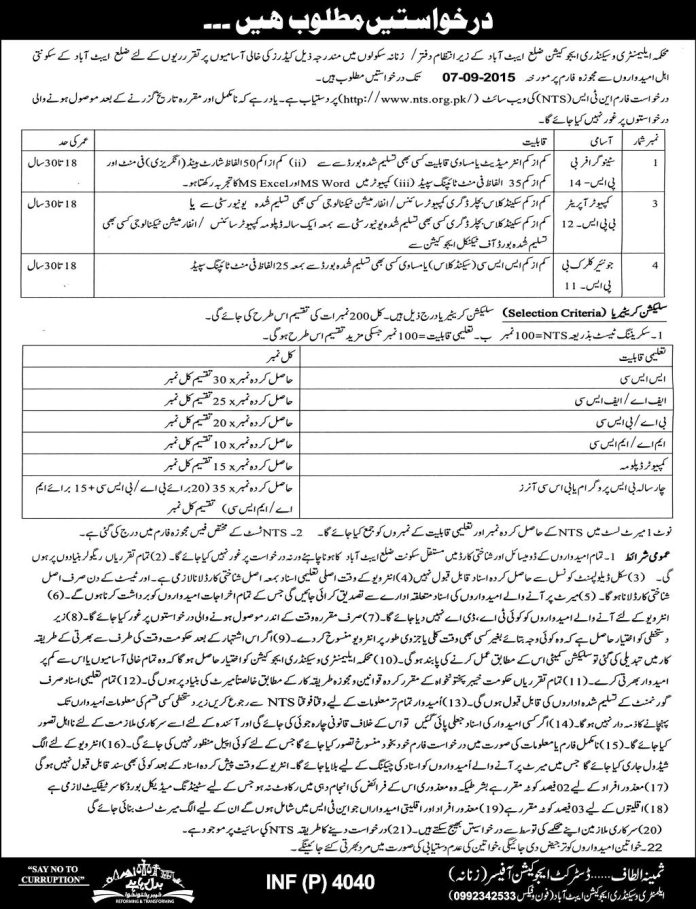 درخواستیں مطلوب ہیں ...
محکمہ ایلیمنٹری و سیکنڈری ایجوکیشن ضلع ایبٹ آباد کے زیر انتظام دفتر/ زنانہ سکولوں میں مندرجہ ذیل کیڈرز کی خالی آسامیوں پر تقرریوں کے لئے ضلع ایبٹ آباد کے سکونتی
اہل امیدواروں سے مجوزہ فارم پر مورخہ 07-09-2015 تک درخواستیں مطلوب ہیں۔
درخواست فارم این ٹی ایس (NTS) کی ویب سائٹ (http://www.nts.org.pk/) پر دستیاب ہے۔ یاد رہے کہ نامکمل اور مقررہ تاریخ گزرنے کے بعد موصول ہونے والی
درخواستوں پر غور نہیں کیا جائے گا۔
نمبر شمار آسامی قابلیت عمر کی حد
1 سٹینوگرافر بی پی ایس- 14 کم از کم انٹرمیڈیٹ یا مساوی قابلیت کسی بھی تسلیم شدہ بورڈ سے (ii) کم از کم 50 الفاظ شارٹ ہینڈ (انگریزی) فی منٹ اور 18 تا 30 سال
کم از کم 35 الفاظ فی منٹ ٹائپنگ سپیڈ (iii) کمپیوٹر میں MS Word اور MS Excel کا تجربہ رکھتا ہو۔
3 کمپیوٹر آپریٹر بی پی ایس- 12 کم از کم سیکنڈ کلاس بیچلر ڈگری کمپیوٹر سائنس/ انفارمیشن ٹیکنالوجی کسی بھی تسلیم شدہ یونیورسٹی سے یا 18 تا 30 سال
کم از کم سیکنڈ کلاس بیچلر ڈگری کسی بھی تسلیم شدہ یونیورسٹی سے بمعہ ایک سالہ ڈپلومہ کمپیوٹر سائنس/ انفارمیشن ٹیکنالوجی کسی بھی
تسلیم شدہ بورڈ آف ٹیکنکل ایجوکیشن سے
4 جونئیر کلرک بی پی ایس- 11 کم از کم ایس ایس سی (سیکنڈ کلاس) یا مساوی کسی بھی تسلیم شدہ بورڈ سے بمعہ 25 الفاظ فی منٹ ٹائپنگ سپیڈ 18 تا 30 سال
سلیکشن کرائیٹیریا (Selection Criteria) سلیکشن کرائیٹیریا درج ذیل ہیں۔ کل 200 نمبرات کی تقسیم اس طرح کی جائے گی۔
1۔ سکریننگ ٹیسٹ بذریعہ NTS=100 نمبر ب۔ تعلیمی قابلیت=100 نمبر جسکی مزید تقسیم اس طرح ہو گی۔
تعلیمی قابلیت کل نمبر
ایس ایس سی حاصل کردہ نمبر x 30 تقسیم کل نمبر
ایف اے/ ایف ایس سی حاصل کردہ نمبر x 25 تقسیم کل نمبر
بی اے/ بی ایس سی حاصل کردہ نمبر x 20 تقسیم کل نمبر
ایم اے/ ایم ایس سی حاصل کردہ نمبر x 10 تقسیم کل نمبر
کمپیوٹر ڈپلومہ حاصل کردہ نمبر x 15 تقسیم کل نمبر
چار سالہ بی ایس پروگرام یا بی اس سی آنرز حاصل کردہ نمبر x 35 (20 برائے بی اے/ بی ایس سی + 15 برائے ایم
اے/ ایم ایس سی) تقسیم کل نمبر
نوٹ 1 میرٹ لسٹ میں NTS کے حاصل کردہ نمبر اور تعلیمی قابلیت کے نمبروں کو جمع کیا جائے گا۔ 2۔ NTS ٹسٹ کے مختص فیس مجوزہ فارم میں درج کی گئی ہے۔
عمومی شرائط 1۔ تمام امیدواروں کے ڈومیسائل اور شناختی کارڈ میں مستقل سکونت ضلع ایبٹ آباد کا ہونا چاہئے ورنہ درخواست پر غور نہیں کیا جائے گا۔ (2) تمام تقرریاں ریگولر بنیادوں پر ہوں
گی۔ (3) سکل ڈیلوپمنٹ کونسل سے حاصل کردہ اسناد قابل قبول نہیں (4) انٹرویو کے وقت اصلی تعلیمی اسناد بمعہ اصل شناختی کارڈ لانا لازمی ہے۔ اور ٹیسٹ کے دن صرف اصل
شناختی کارڈ لانا ہوگا۔ (5) میرٹ پر آنے والے امیدواروں کی اسناد متعلقہ ادارے سے تصدیق کرائی جائیں گی جس کے تمام اخراجات امیدواروں کو برداشت کرنا ہوں گے۔ (6)
انٹرویو کے لئے آنے والے امیدواروں کو کوئی ٹی اے، ڈی اے نہیں دیا جائے گا۔ (7) صرف مقررہ وقت کے اندر موصول ہونے والی درخواستوں پر غور کیا جائے گا۔ (8) زیر
دستخطی کو اختیار حاصل ہے کہ وہ کوئی وجہ بتائے بغیر کسی بھی وقت کلی یا جزوی طور پر انٹرویو منسوخ کر دے۔ (9) اگر اس اشتہار کے بعد حکومت وقت کی طرف سے بھرتی کے طریقہ
کار میں تبدیلی کی گئی تو سلیکشن کمیٹی اس کے مطابق عمل کرنے کی پابند ہو گی۔ (10) محکمہ ایلیمنٹری و سیکنڈری ایجوکیشن کو اختیار حاصل ہوگا کہ وہ تمام خالی آسامیوں یا اس سے کم پر
امیدوار بھرتی کرے۔ (11) تمام تقرریاں حکومت خیبر پختونخواہ کے مقرر کردہ قوانین و مجوزہ طریقہ کار کے مطابق خالصتاً میرٹ کی بنیاد پر ہوں گی۔ (12) تمام تعلیمی اسناد صرف
گورنمنٹ کے تسلیم شدہ اداروں کی قابل قبول ہوں گی۔ (13) امیدوار تمام تر معلومات کے لیے وقتاً فوقتاً NTS سے رجوع کریں زیر دستخطی کسی قسم کی معلومات امیدواران تک
پہچانے کا ذمہ دار نہیں ہوگا۔ (14) اگر کسی امیدوار کی اسناد جعلی پائی گئیں تو اس کے خلاف قانونی چارہ جوئی کی جائے گی اور آئندہ کے لئے اسے سرکاری ملازمت کے لئے نااہل تصور
کیا جائے گا۔ (15) نامکمل فارم یا معلومات کی صورت میں درخواست فارم خود بخود منسوخ تصور کیا جائے گا جس کے لئے کوئی اپیل منظور نہیں کی جائے گی۔ (16) انٹرویو کے لئے الگ
شیڈول جاری کیا جائے گا جس میں میرٹ پر آنے والے امیدواروں کو اسناد کی چیکنگ کے لیے بلایا جائے گا۔ انٹرویو کے وقت پیش کردہ اسناد کے بعد کوئی بھی سند قابل قبول نہیں ہو گی
(17) معذور افراد کے لیے 02 فیصد کوٹہ مقرر ہے بشرطیکہ وہ معذوری اس کے فرائض کی انجام دہی میں رکاوٹ نہ ہو جس کے لیے سٹینڈنگ میڈیکل بورڈ کا سرٹیفکیٹ لازمی ہے
(18) اقلیتوں کے لیے 03 فیصد کوٹہ مقرر ہے (19) معذور افراد اور اقلیتی امیدواران جو این ٹی ایس میں شامل ہوں گے ان کے لیے الگ میرٹ لسٹ بنائی جائے گی
(20) سرکاری ملازمین اپنے محکمے کی توسط سے درخواستیں بھیج سکتے ہیں۔ (21) درخواست دینے کا طریقہ NTS کی سائیٹ پر موجود ہے۔
22۔ خواتین امیدواروں کو ترجیح دی جائیگی، خواتین کی عدم دستیابی کی صورت میں مرد بھرتی کئے جائینگے۔
ثمینہ الطاف ..... ڈسٹرکٹ ایجوکیشن آفیسر (زنانہ)
ایلمنٹری و سیکنڈری ایجوکیشن ایبٹ آباد (فون و فیکس 0992342533)
INF (P) 4040
"SAY NO TO
CURRUPTION"
خیبر پختونخوا
REFORMING & TRANSFORMING